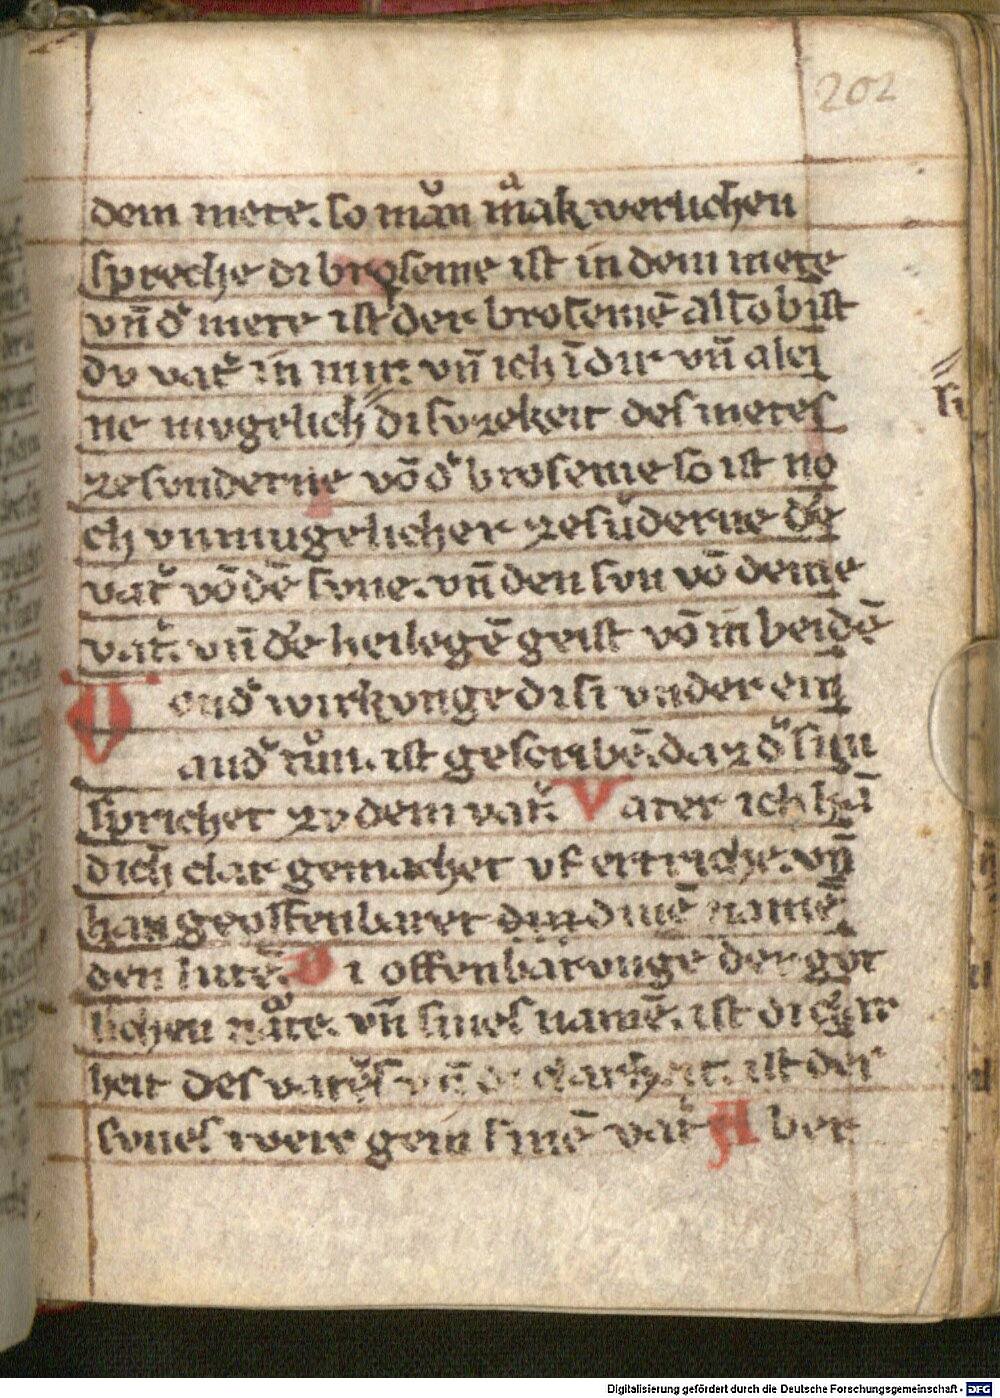 202
dem mere. so mũan mͣak werlichen
spreche di broseme ist in dem mere
vn̄ dʾ mere ist der brosemē also bist
du vatʾ in mir. vn̄ ich ī dir vn̄ alei
ne mvgelich di svzekeit des meres
zesvnderne vō dʾ broseme so ist no
ch vnmugelicher zesūderne dē
vatʾ vō dē svne. vn̄ den svn vō deme
vatʾ. vn̄ dē heilegē geist vō in beidē
ondʾ wirkvnge di si vnder ein
andʾ tůn. ist gescribē. daz dʾ sun
sprichet zv dem vatʾ. Vater ich hā
dich clar gemachet vf ertriche. vn̄
han geoffenbaret dinē namē
den lutē. Di offenbarvnge der got
lichen natͮre. vn̄ sines namē. ist di
heit des vatʾs vn̄ di clarheit. ist der
svnes weir gein sinē vatʾ Aber
Digitalisierung gefördert durch die Deutsche Forschungsgemeinschaft - DFG